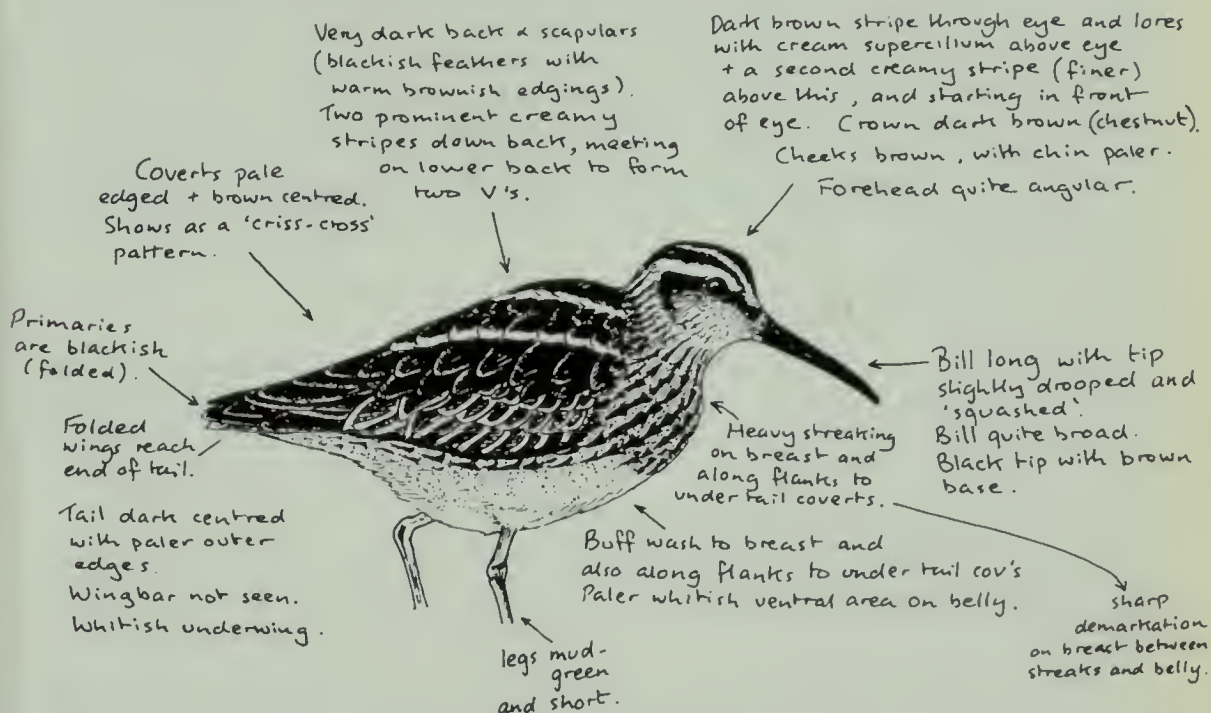 Very dark back & scapulars
(blackish feathers with
warm brownish edgings).
Two prominent creamy
stripes down back, meeting
on lower back to form
two V's.
Dark brown stripe through eye and lores
with cream supercilium above eye
+ a second creamy stripe (finer)
above this, and starting in front
of eye. Crown dark brown (chestnut).
Cheeks brown, with chin paler.
Forehead quite angular.
Coverts pale
edged + brown centred.
Shows as a 'criss-cross'
pattern.
Primaries
are blackish
(folded).
Folded
wings reach
end of tail.
Tail dark centred
with paler outer
edges.
Wingbar not seen.
Whitish underwing.
Bill long with tip
slightly drooped and
'squashed'.
Bill quite broad.
Black tip with brown
base.
Heavy streaking
on breast and
along flanks to
under tail coverts.
Buff wash to breast and
also along flanks to under tail cov's
Paler whitish ventral area on belly.
sharp
demarkation
on breast between
streaks and belly.
legs mud-
green
and short.